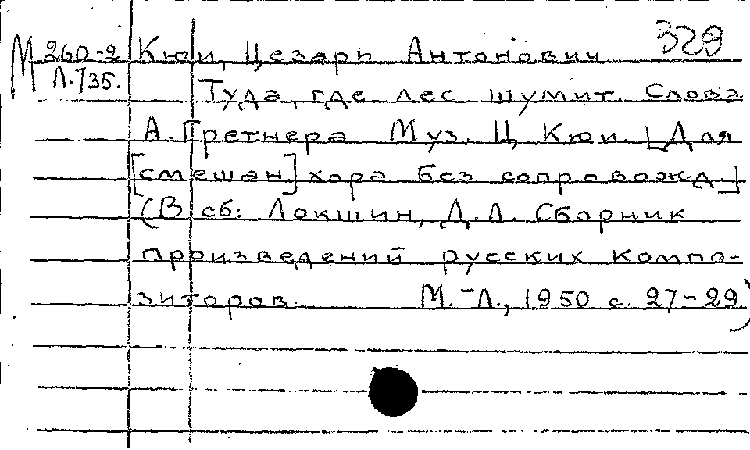 М 260-2 Кюи, Цезарь Антонович 329
Л.735. Туда, где лес шумит. Слова
А. Гретнера Муз. Ц. Кюи. [Для
[смешан] хора без сопровожд.]
(В сб: Локшин, Д.Л. Сборник
произведений русских компо-
зиторов. М.-Л., 1950 с. 27-29)